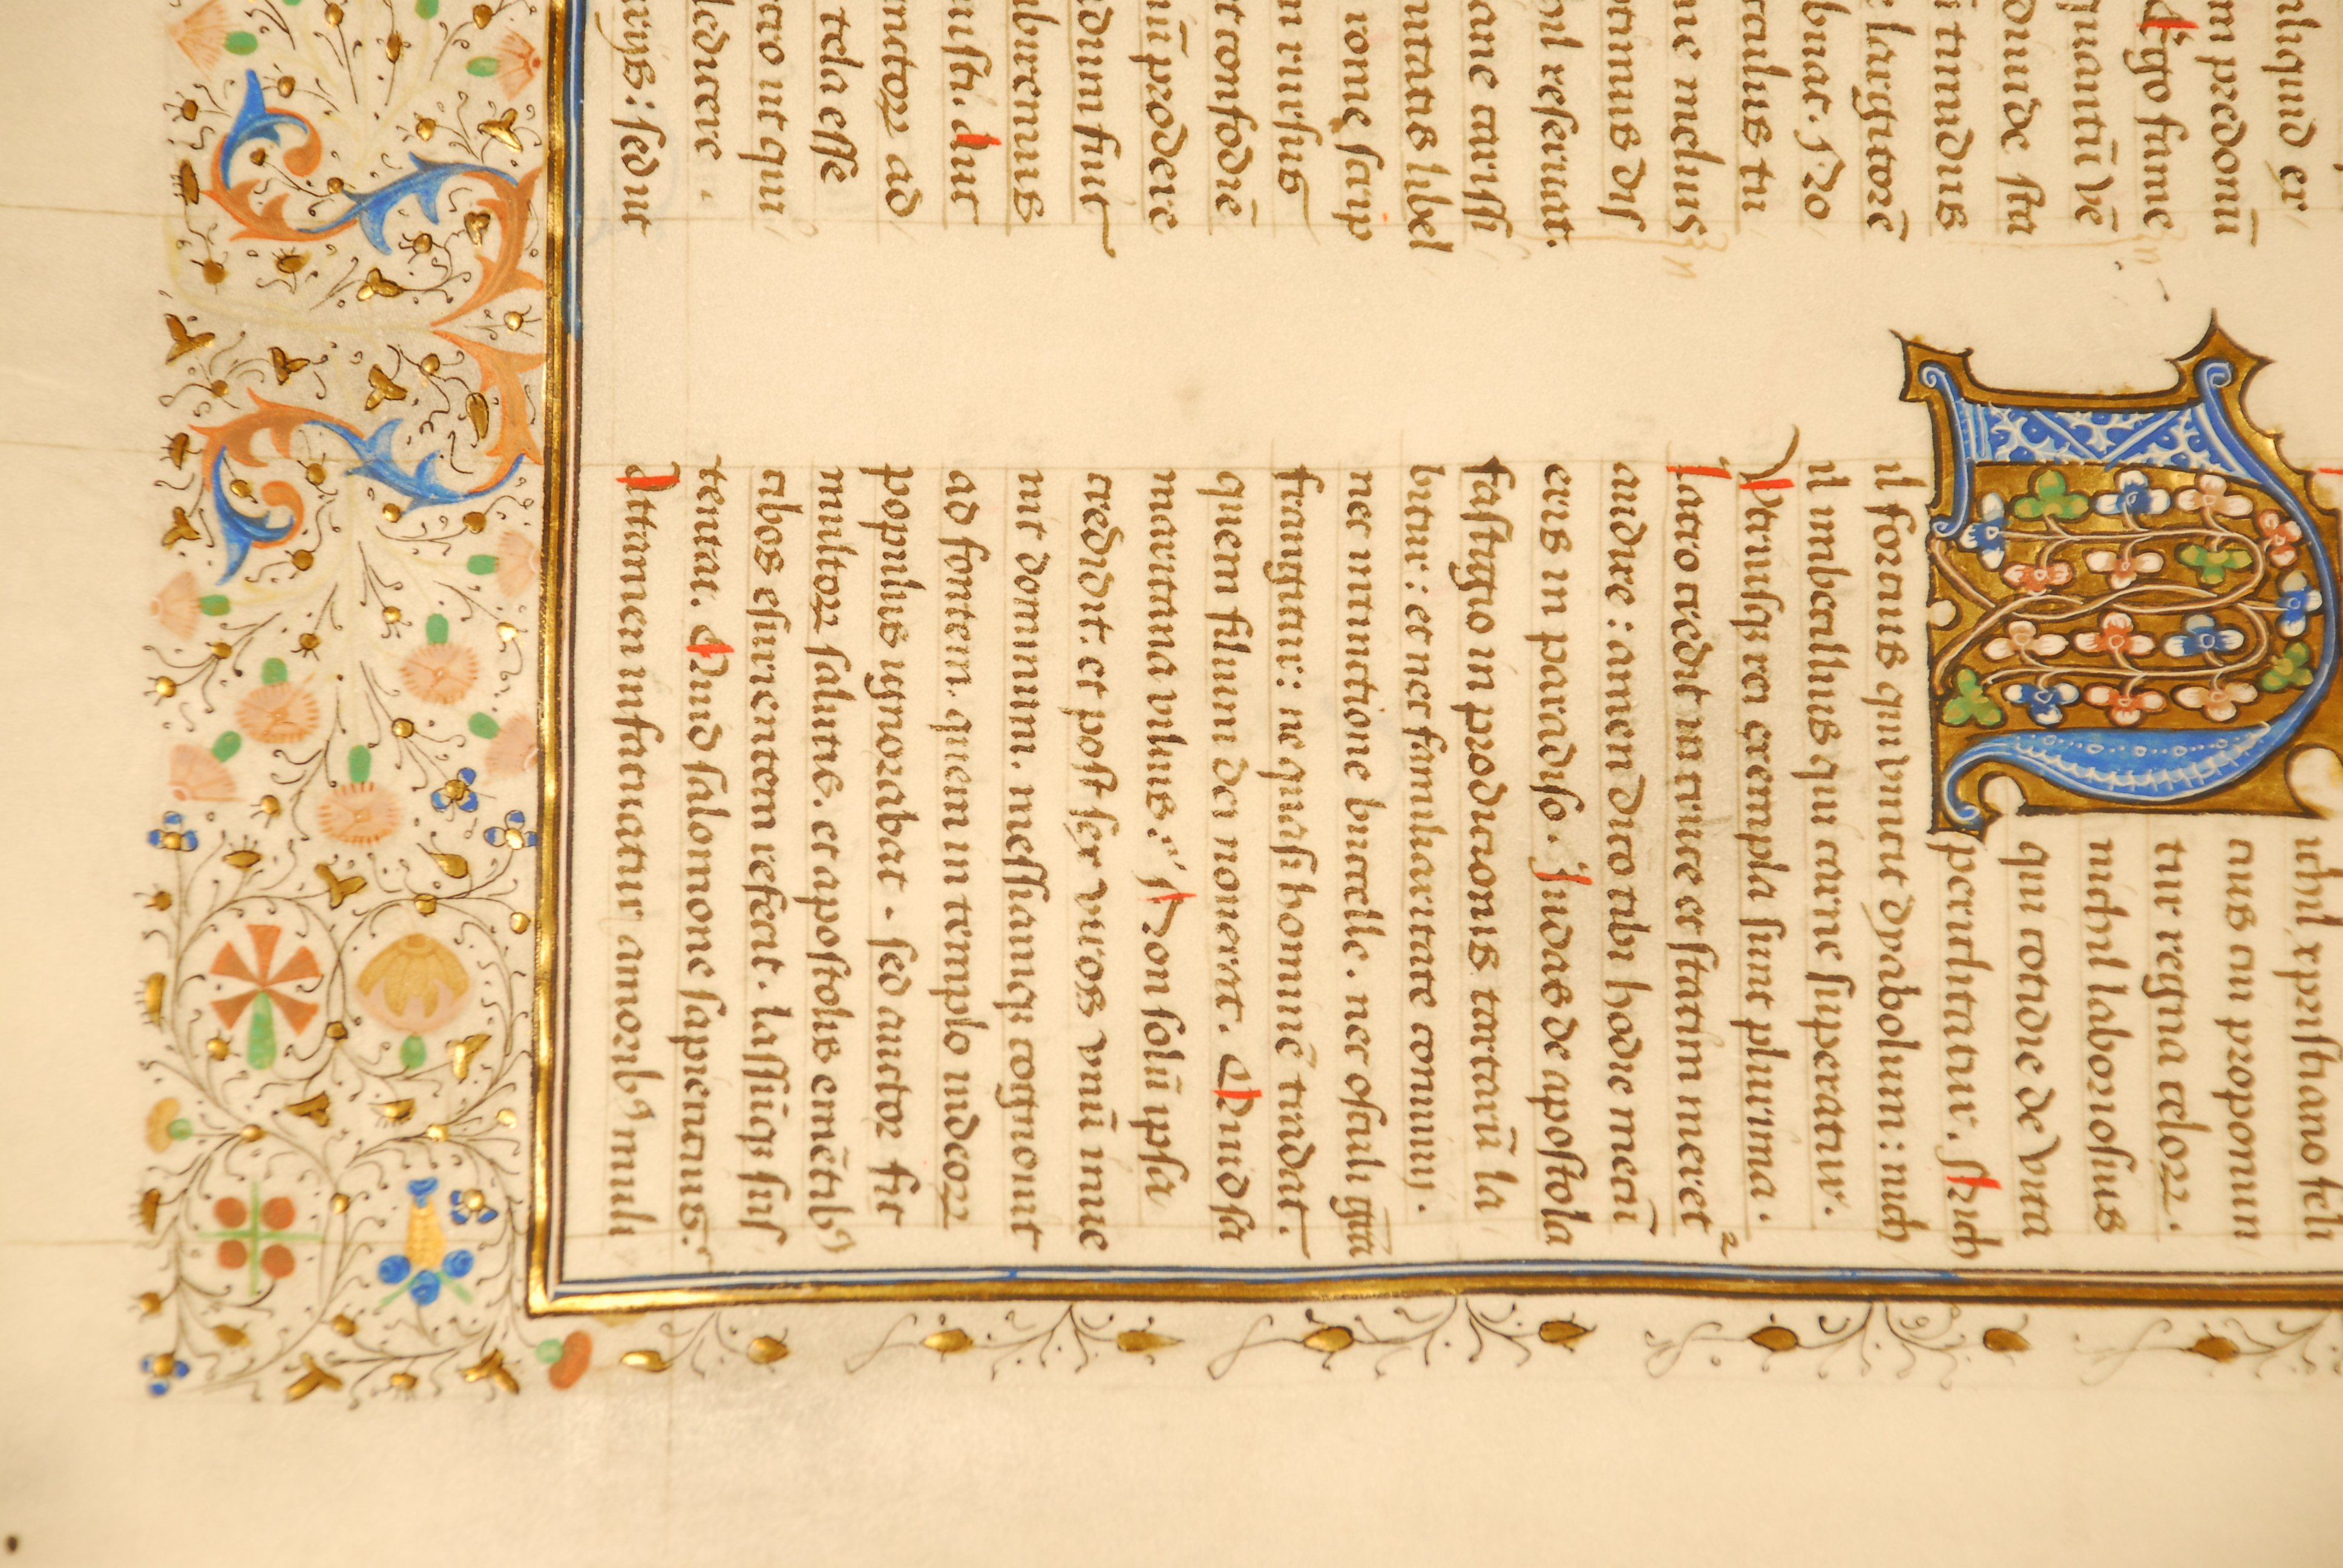 er
m predomī
Ergo fame
quantū ve
diuide sta
timidus
largitorē
buat. No
tu
ne melius
dis
reseruat.
ane carissi
libel
rome scrip
rursus
confodiē
prodere
dium fiūt
iburemus
nisti. Aut
nctoꝝ ad
tela esse
ut qui
deducere.
rijs: sedūt
ichil xpristiano feli
cius cui promittun
tur regna celoꝝ.
nichil laboriosius
qui cotidie de vita
periclitatur. Nich
il forcius qui vincit dyabolum: nich
il imbecillius qui carne superatur.
Vtriusqꝫ rei exempla sunt plurima.
Latro credit in cruce et statim meret
audire: amen dico tibi hodie mecū
eris in paradiso. Iudas de apostola
fastigio in prodicionis tartarū la
bitur: et nec familiaritate conuiuij.
nec intinctione buccelle. nec osculi gr̄a
frangitur: ne quasi hominē tradat.
quem filium dei nouerat. Quid sa
maritana vilius? Non solū ipsa
credidit. et post sex viros vnū inue
nit dominum. messiamqꝫ cognouit
ad fontem. quem in templo iudeoꝝ
populus ignorabat. sed auctor fit
multoꝝ salutis. et apostolis emētibꝰ
cibos esurientem reficit. lassūqꝫ sus
tentat. Quid salomone sapiencius.
Attamen infatuatur amoribꝰ muli